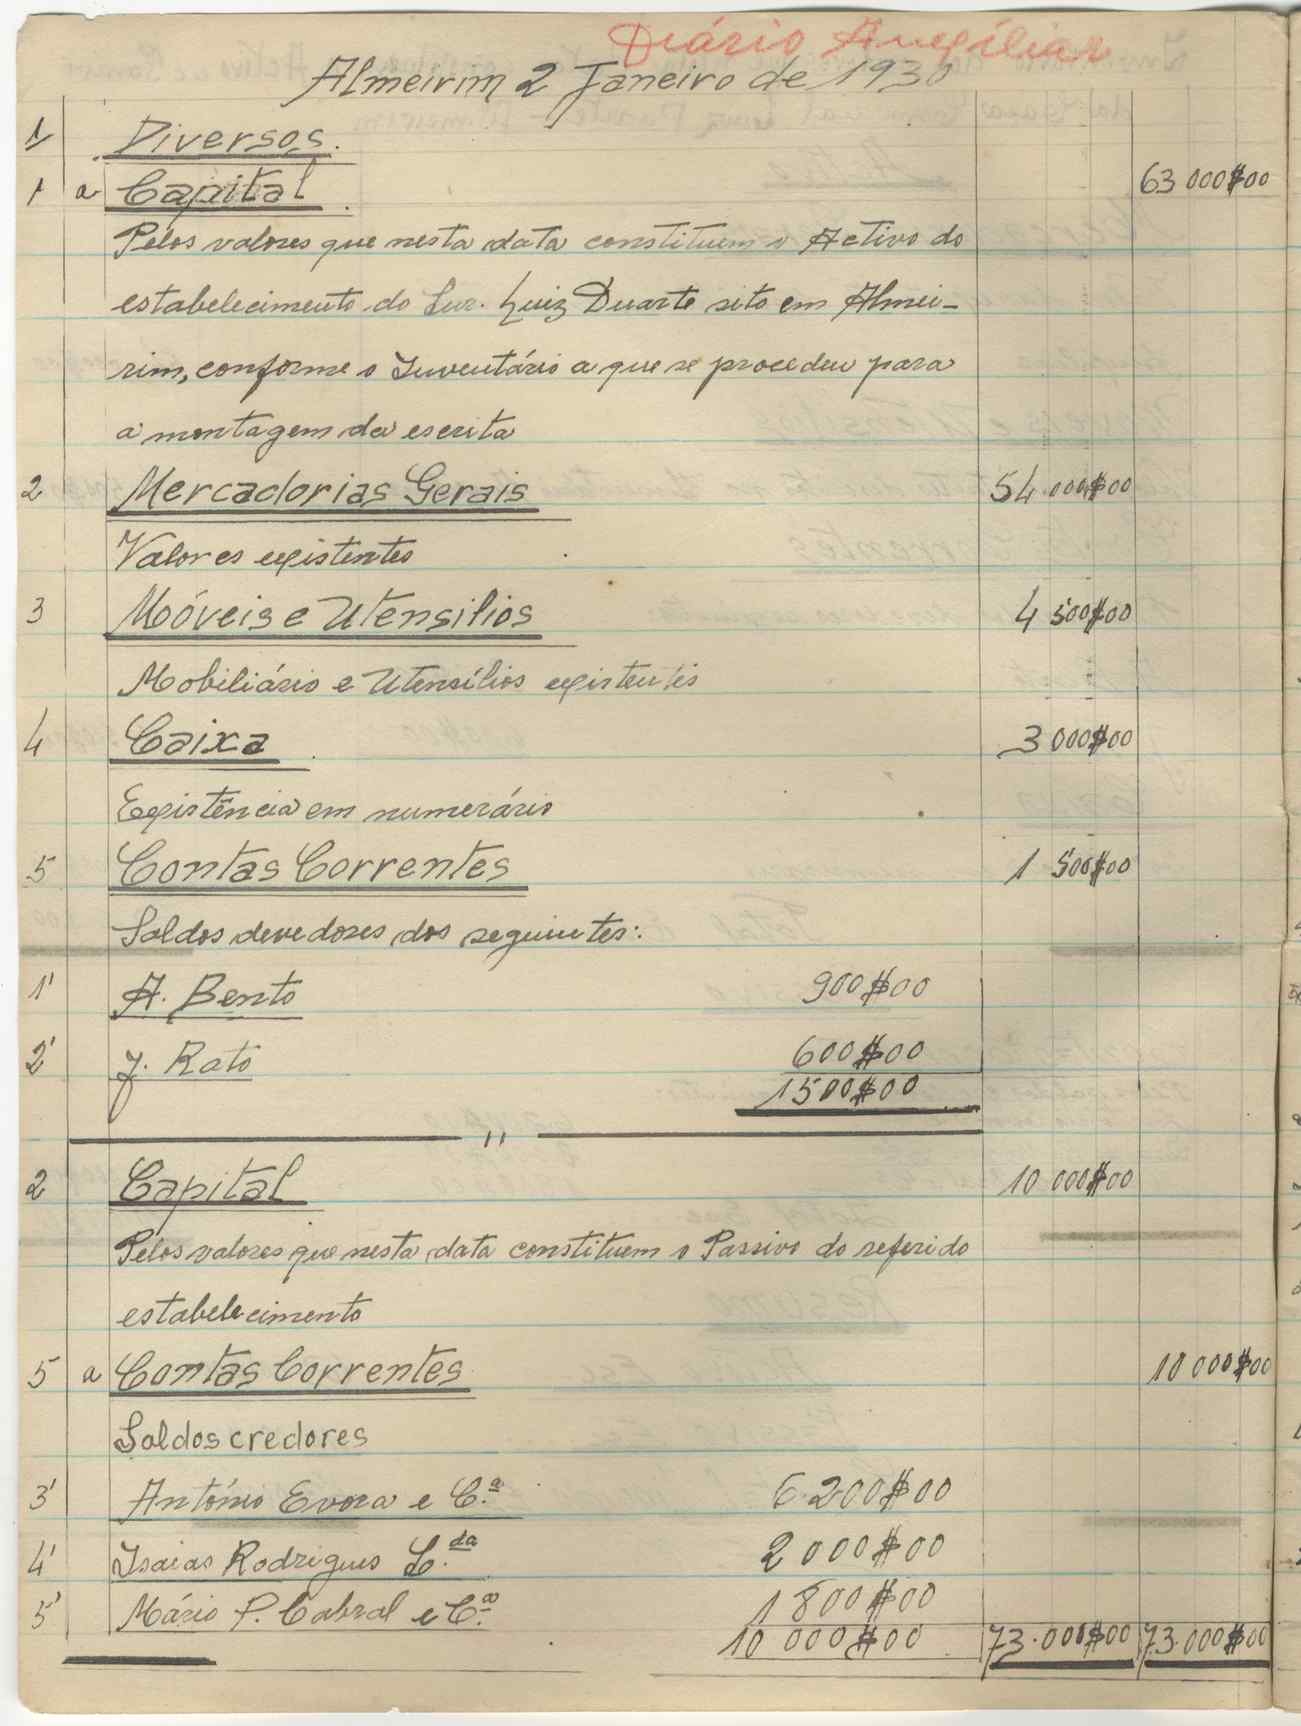 Diário Auxiliar
Almeirim 2 Janeiro de 1930
1 Diversos.
1 a Capital 63 000$00
Pelos valores que nesta data constituem o Activo do
estabelecimento do Snr. Luiz Duarte sito em Almei-
rim, conforme o Inventário a que se procedeu para
a montagem da escrita
2 Mercadorias Gerais 54 000$00
Valores existentes
3 Móveis e Utensilios 4 500$00
Mobiliário e Utensílios existentes
4 Caixa 3 000$00
Existência em numerário
5 Contas Correntes 1 500$00
Saldos devedores dos seguintes:
1' A. Bento 900$00
2' J. Rato 600$00
1500$00
"
2 Capital 10 000$00
Pelos valores que nesta data constituem o Passivo do referido
estabelecimento
5 a Contas Correntes 10 000$00
Saldos credores
3' António Evora e C.ª 6.200$00
4' Isaias Rodrigues L.da 2 000$00
5' Mário P. Cabral e C.ª 1 800$00
10 000$00 73.000$00 73.000$00